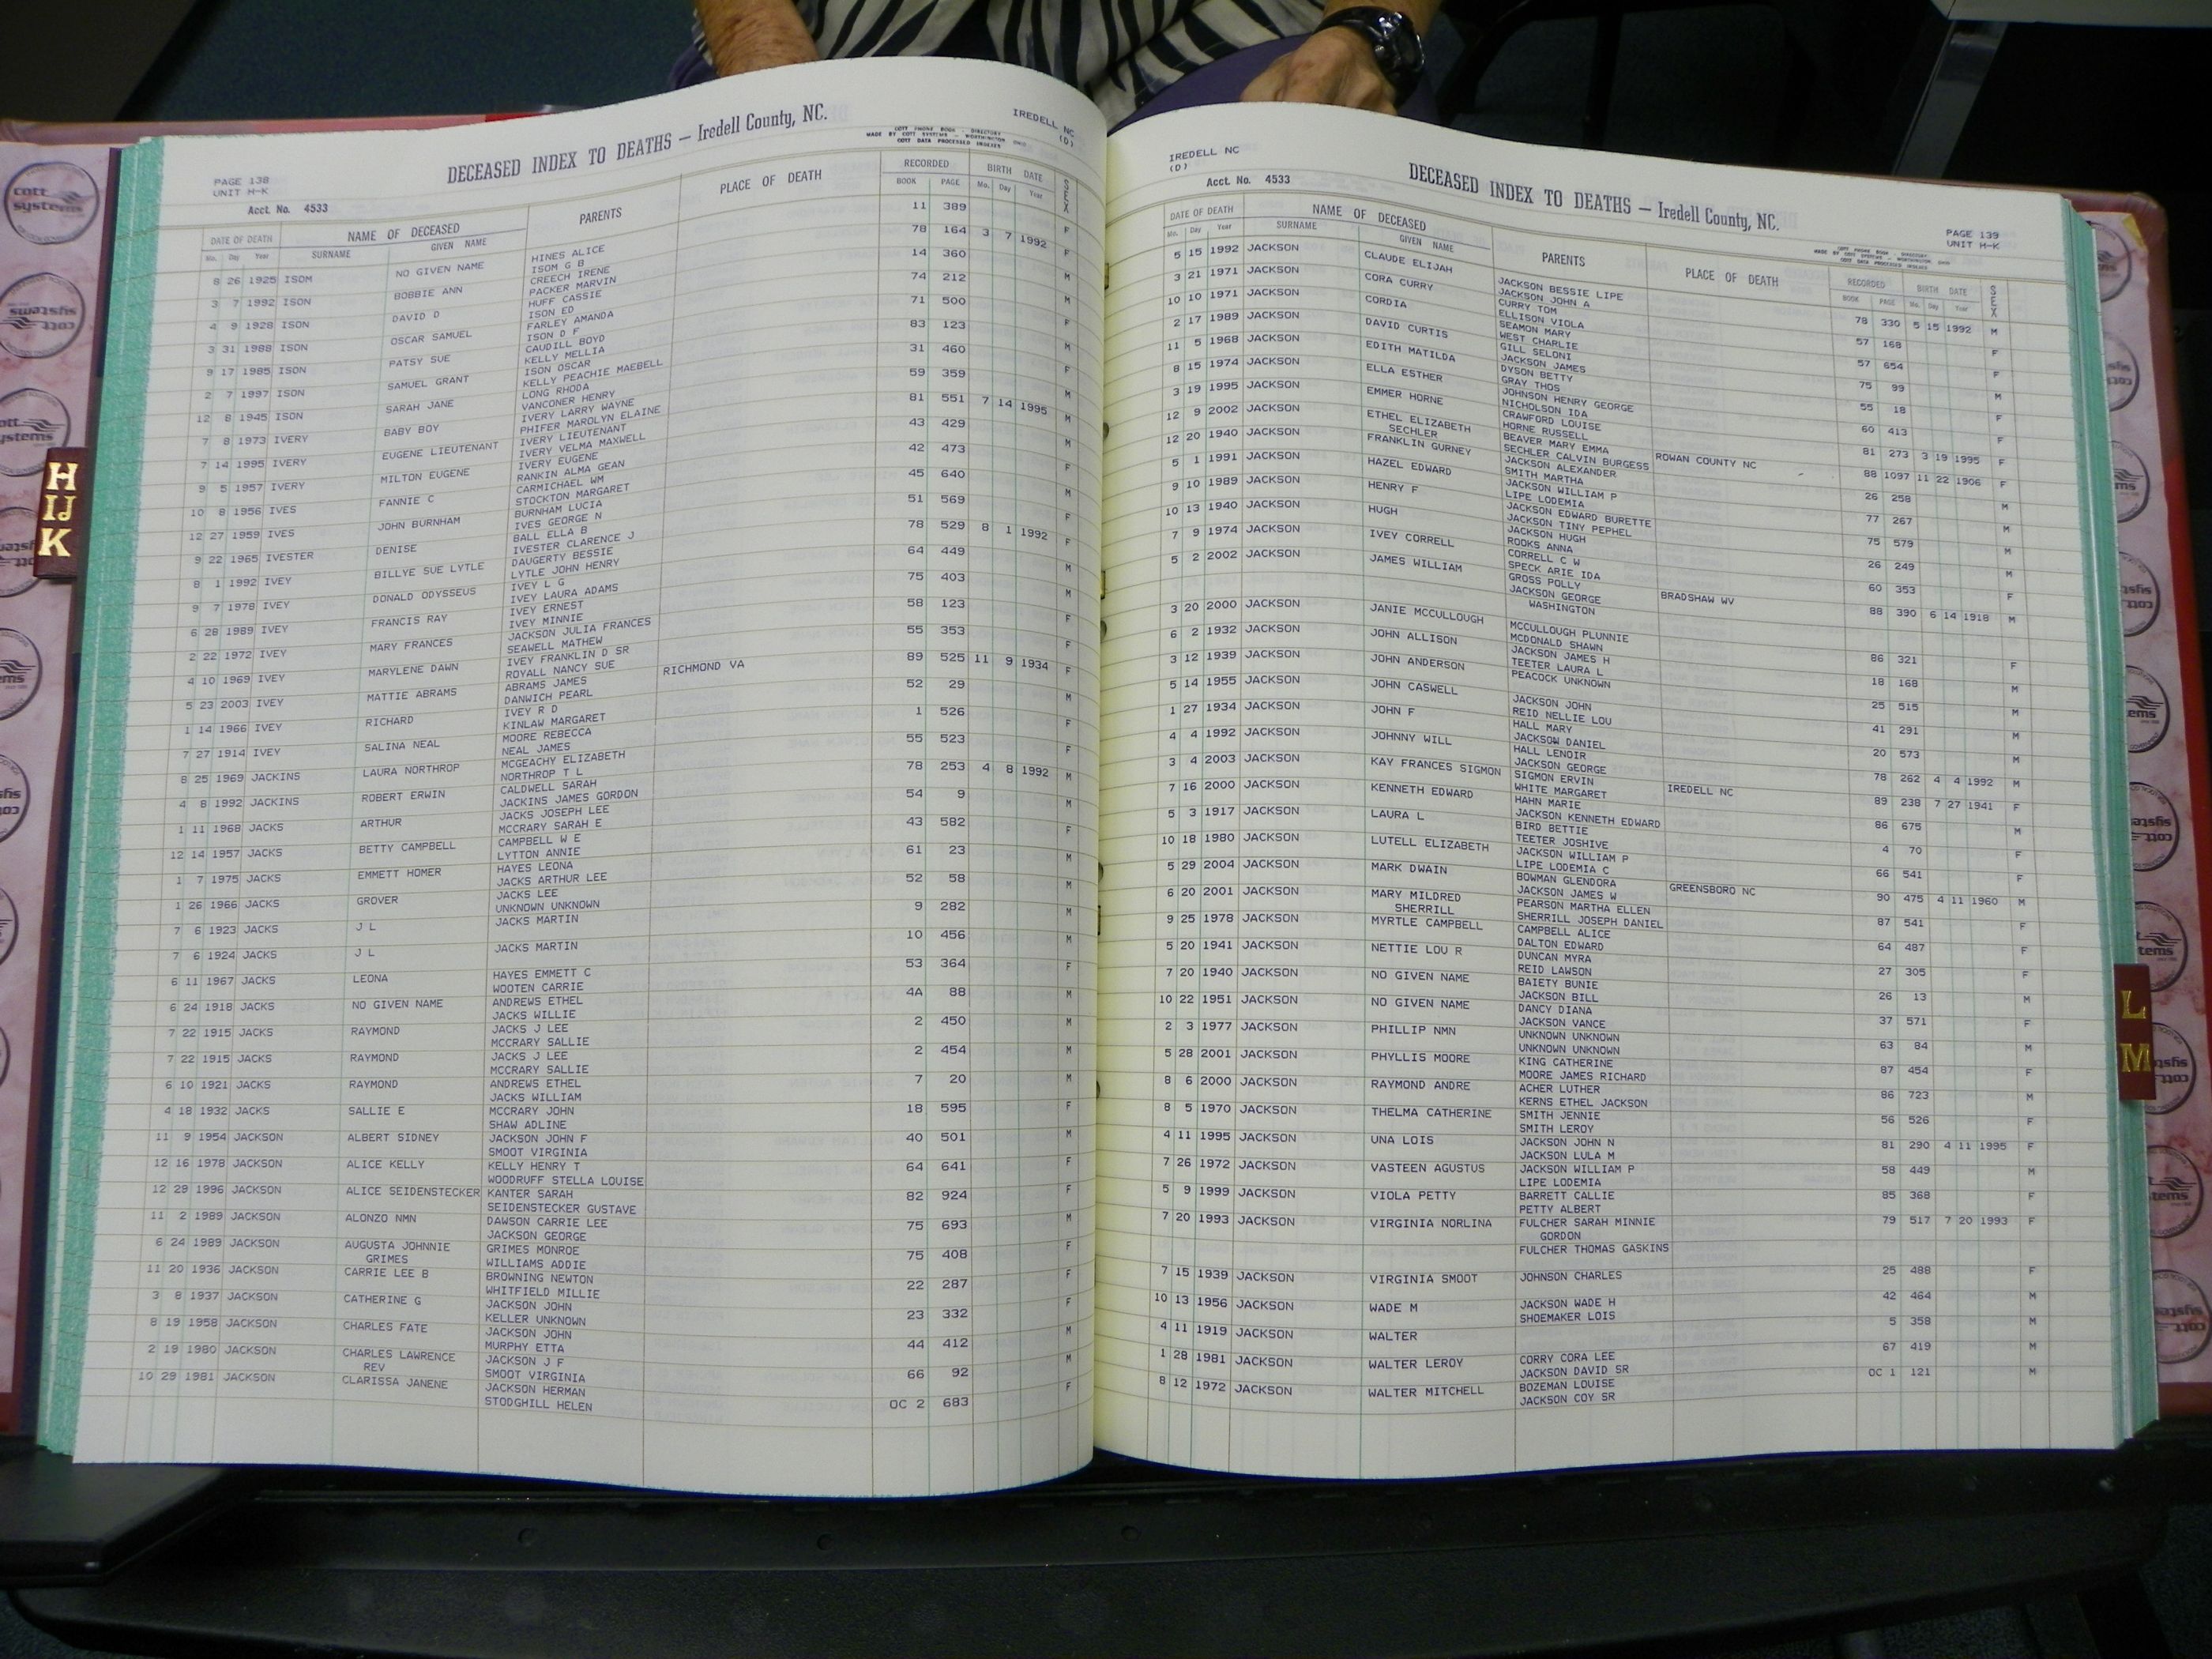 PAGE 138
UNIT H-K
DECEASED INDEX TO DEATHS — Iredell County, NC.
IREDELL NC
(D)
COTT PHONE BOOK - DIRECTORY
MADE BY COTT SYSTEMS - WORTHINGTON, OHIO
COTT DATA PROCESSED INDEXES
Acct. No. 4533
DATE OF DEATH NAME OF DECEASED PARENTS PLACE OF DEATH RECORDED BIRTH DATE SEX
Mo. Day Year SURNAME GIVEN NAME BOOK PAGE Mo. Day Year
8 26 1925 ISOM NO GIVEN NAME HINES ALICE 11 389 F
ISOM G B
3 7 1992 ISON BOBBIE ANN CREECH IRENE 78 164 3 7 1992 F
PACKER MARVIN
4 9 1928 ISON DAVID D HUFF CASSIE 14 360 M
ISON ED
3 31 1988 ISON OSCAR SAMUEL FARLEY AMANDA 74 212 M
ISON D F
9 17 1985 ISON PATSY SUE CAUDILL BOYD 71 500 F
KELLY MELLIA
2 7 1997 ISON SAMUEL GRANT ISON OSCAR 83 123 M
KELLY PEACHIE MAEBELL
12 8 1945 ISON SARAH JANE LONG RHODA 31 460 F
VANCONER HENRY
7 8 1973 IVERY BABY BOY IVERY LARRY WAYNE 59 359 M
PHIFER MAROLYN ELAINE
7 14 1995 IVERY EUGENE LIEUTENANT IVERY LIEUTENANT 81 551 7 14 1995 M
IVERY VELMA MAXWELL
9 5 1957 IVERY MILTON EUGENE IVERY EUGENE 43 429 M
RANKIN ALMA GEAN
10 8 1956 IVES FANNIE C CARMICHAEL WM 42 473 F
STOCKTON MARGARET
12 27 1959 IVES JOHN BURNHAM BURNHAM LUCIA 45 640 M
IVES GEORGE N
9 22 1965 IVESTER DENISE BALL ELLA B 51 569 F
IVESTER CLARENCE J
8 1 1992 IVEY BILLYE SUE LYTLE DAUGERTY BESSIE 78 529 8 1 1992 F
LYTLE JOHN HENRY
9 7 1978 IVEY DONALD ODYSSEUS IVEY L G 64 449 M
IVEY LAURA ADAMS
6 28 1989 IVEY FRANCIS RAY IVEY ERNEST 75 403 M
IVEY MINNIE
2 22 1972 IVEY MARY FRANCES JACKSON JULIA FRANCES 58 123 F
SEAWELL MATHEW
4 10 1969 IVEY MARYLENE DAWN IVEY FRANKLIN D SR 55 353 F
ROYALL NANCY SUE
5 23 2003 IVEY MATTIE ABRAMS ABRAMS JAMES RICHMOND VA 89 525 11 9 1934 F
DANWICH PEARL
1 14 1966 IVEY RICHARD IVEY R D 52 29 M
KINLAW MARGARET
7 27 1914 IVEY SALINA NEAL MOORE REBECCA 1 526 F
NEAL JAMES
8 25 1969 JACKINS LAURA NORTHROP MCGEACHY ELIZABETH 55 523 F
NORTHROP T L
4 8 1992 JACKINS ROBERT ERWIN CALDWELL SARAH 78 253 4 8 1992 M
JACKINS JAMES GORDON
1 11 1968 JACKS ARTHUR JACKS JOSEPH LEE 54 9 M
MCCRARY SARAH E
12 14 1957 JACKS BETTY CAMPBELL CAMPBELL W E 43 582 F
LYTTON ANNIE
1 7 1975 JACKS EMMETT HOMER HAYES LEONA 61 23 M
JACKS ARTHUR LEE
1 26 1966 JACKS GROVER JACKS LEE 52 58 M
UNKNOWN UNKNOWN
7 6 1923 JACKS J L JACKS MARTIN 9 282 M
7 6 1924 JACKS J L JACKS MARTIN 10 456 M
6 11 1967 JACKS LEONA HAYES EMMETT C 53 364 F
WOOTEN CARRIE
6 24 1918 JACKS NO GIVEN NAME ANDREWS ETHEL 4A 88 M
JACKS WILLIE
7 22 1915 JACKS RAYMOND JACKS J LEE 2 450 M
MCCRARY SALLIE
7 22 1915 JACKS RAYMOND JACKS J LEE 2 454 M
MCCRARY SALLIE
6 10 1921 JACKS RAYMOND ANDREWS ETHEL 7 20 M
JACKS WILLIAM
4 18 1932 JACKS SALLIE E MCCRARY JOHN 18 595 F
SHAW ADLINE
11 9 1954 JACKSON ALBERT SIDNEY JACKSON JOHN F 40 501 M
SMOOT VIRGINIA
12 16 1978 JACKSON ALICE KELLY KELLY HENRY T 64 641 F
WOODRUFF STELLA LOUISE
12 29 1996 JACKSON ALICE SEIDENSTECKER KANTER SARAH 82 924 F
SEIDENSTECKER GUSTAVE
11 2 1989 JACKSON ALONZO NMN DAWSON CARRIE LEE 75 693 M
JACKSON GEORGE
6 24 1989 JACKSON AUGUSTA JOHNNIE GRIMES MONROE 75 408 F
GRIMES WILLIAMS ADDIE
11 20 1936 JACKSON CARRIE LEE B BROWNING NEWTON 22 287 F
WHITFIELD MILLIE
3 8 1937 JACKSON CATHERINE G JACKSON JOHN 23 332 F
KELLER UNKNOWN
8 19 1958 JACKSON CHARLES FATE JACKSON JOHN 44 412 M
MURPHY ETTA
2 19 1980 JACKSON CHARLES LAWRENCE JACKSON J F 66 92 M
REV SMOOT VIRGINIA
10 29 1981 JACKSON CLARISSA JANENE JACKSON HERMAN OC 2 683 F
STODGHILL HELEN
IREDELL NC
(D)
Acct. No. 4533
DECEASED INDEX TO DEATHS — Iredell County, NC.
PAGE 139
UNIT H-K
DATE OF DEATH NAME OF DECEASED PARENTS PLACE OF DEATH RECORDED BIRTH DATE SEX
Mo. Day Year SURNAME GIVEN NAME BOOK PAGE Mo. Day Year
5 15 1992 JACKSON CLAUDE ELIJAH JACKSON BESSIE LIPE 78 330 5 15 1992 M
JACKSON JOHN A
3 21 1971 JACKSON CORA CURRY CURRY TOM 57 168 F
ELLISON VIOLA
10 10 1971 JACKSON CORDIA SEAMON MARY 57 654 F
WEST CHARLIE
2 17 1989 JACKSON DAVID CURTIS GILL SELONI 75 99 M
JACKSON JAMES
11 5 1968 JACKSON EDITH MATILDA DYSON BETTY 55 18 F
GRAY THOS
8 15 1974 JACKSON ELLA ESTHER JOHNSON HENRY GEORGE 60 413 F
NICHOLSON IDA
3 19 1995 JACKSON EMMER HORNE CRAWFORD LOUISE 81 273 3 19 1995 F
HORNE RUSSELL
12 9 2002 JACKSON ETHEL ELIZABETH BEAVER MARY EMMA ROWAN COUNTY NC 88 1097 11 22 1906 F
SECHLER SECHLER CALVIN BURGESS
12 20 1940 JACKSON FRANKLIN GURNEY JACKSON ALEXANDER 26 258 M
SMITH MARTHA
5 1 1991 JACKSON HAZEL EDWARD JACKSON WILLIAM P 77 267 M
LIPE LODEMIA
9 10 1989 JACKSON HENRY F JACKSON EDWARD BURETTE 75 579 M
JACKSON TINY PEPHEL
10 13 1940 JACKSON HUGH JACKSON HUGH 26 249 M
ROOKS ANNA
7 9 1974 JACKSON IVEY CORRELL CORRELL C W 60 353 F
SPECK ARIE IDA
5 2 2002 JACKSON JAMES WILLIAM GROSS POLLY BRADSHAW WV 88 390 6 14 1918 M
JACKSON GEORGE
WASHINGTON
3 20 2000 JACKSON JANIE MCCULLOUGH MCCULLOUGH PLUNNIE 86 321 F
MCDONALD SHAWN
6 2 1932 JACKSON JOHN ALLISON JACKSON JAMES H 18 168 M
TEETER LAURA L
3 12 1939 JACKSON JOHN ANDERSON PEACOCK UNKNOWN 25 515 M
5 14 1955 JACKSON JOHN CASWELL JACKSON JOHN 41 291 M
REID NELLIE LOU
1 27 1934 JACKSON JOHN F HALL MARY 20 573 M
JACKSOW DANIEL
4 4 1992 JACKSON JOHNNY WILL HALL LENOIR 78 262 4 4 1992 M
JACKSON GEORGE
3 4 2003 JACKSON KAY FRANCES SIGMON SIGMON ERVIN IREDELL NC 89 238 7 27 1941 F
WHITE MARGARET
7 16 2000 JACKSON KENNETH EDWARD HAHN MARIE 86 675 M
JACKSON KENNETH EDWARD
5 3 1917 JACKSON LAURA L BIRD BETTIE 4 70 F
TEETER JOSHIVE
10 18 1980 JACKSON LUTELL ELIZABETH JACKSON WILLIAM P 66 541 F
LIPE LODEMIA C
5 29 2004 JACKSON MARK DWAIN BOWMAN GLENDORA GREENSBORO NC 90 475 4 11 1960 M
JACKSON JAMES W
6 20 2001 JACKSON MARY MILDRED PEARSON MARTHA ELLEN 87 541 F
SHERRILL SHERRILL JOSEPH DANIEL
9 25 1978 JACKSON MYRTLE CAMPBELL CAMPBELL ALICE 64 487 F
DALTON EDWARD
5 20 1941 JACKSON NETTIE LOU R DUNCAN MYRA 27 305 F
REID LAWSON
7 20 1940 JACKSON NO GIVEN NAME BAIETY BUNIE 26 13 M
JACKSON BILL
10 22 1951 JACKSON NO GIVEN NAME DANCY DIANA 37 571 F
JACKSON VANCE
2 3 1977 JACKSON PHILLIP NMN UNKNOWN UNKNOWN 63 84 M
UNKNOWN UNKNOWN
5 28 2001 JACKSON PHYLLIS MOORE KING CATHERINE 87 454 F
MOORE JAMES RICHARD
8 6 2000 JACKSON RAYMOND ANDRE ACHER LUTHER 86 723 M
KERNS ETHEL JACKSON
8 5 1970 JACKSON THELMA CATHERINE SMITH JENNIE 56 526 F
SMITH LEROY
4 11 1995 JACKSON UNA LOIS JACKSON JOHN N 81 290 4 11 1995 F
JACKSON LULA M
7 26 1972 JACKSON VASTEEN AGUSTUS JACKSON WILLIAM P 58 449 M
LIPE LODEMIA
5 9 1999 JACKSON VIOLA PETTY BARRETT CALLIE 85 368 F
PETTY ALBERT
7 20 1993 JACKSON VIRGINIA NORLINA FULCHER SARAH MINNIE 79 517 7 20 1993 F
GORDON
FULCHER THOMAS GASKINS
7 15 1939 JACKSON VIRGINIA SMOOT JOHNSON CHARLES 25 488 F
10 13 1956 JACKSON WADE M JACKSON WADE H 42 464 M
SHOEMAKER LOIS
4 11 1919 JACKSON WALTER 5 358 M
1 28 1981 JACKSON WALTER LEROY CORRY CORA LEE 67 419 M
JACKSON DAVID SR
8 12 1972 JACKSON WALTER MITCHELL BOZEMAN LOUISE OC 1 121 M
JACKSON COY SR
H
IJ
K
L
M
cott
systems